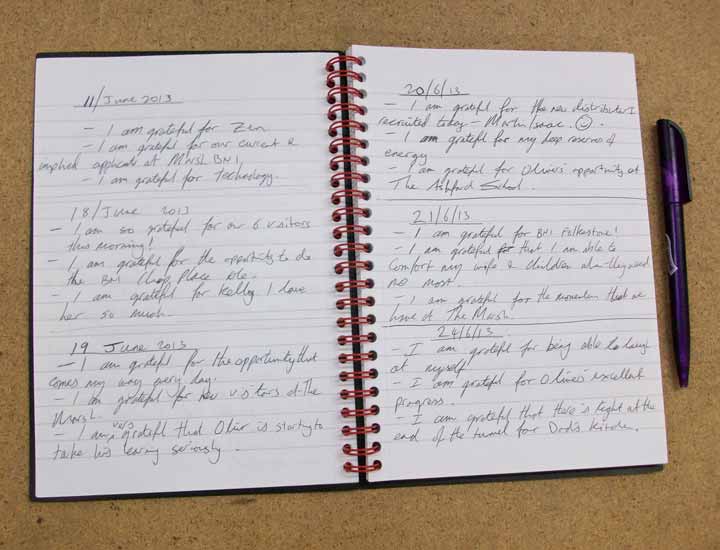 11/June 2013
- I am grateful for Zen
- I am grateful for our current &
applicants at Marsh BNI
- I am grateful for Technology.
18/June 2013
- I am so grateful for our 6 visitors
this morning!
- I am grateful for the opportunity to do
the BNI Place
- I am grateful for Kelly I love
her so much.
19 June 2013
- I am grateful for the opportunity that
comes my way every day.
- I am grateful for new visitors at the
Marsh.
- I am very grateful that Oliver is starting to
take his learning seriously.
20/6/13
- I am grateful for the new distributor I
recruited today - Martin Isaac. ☺.
- I am grateful for my deep reserves of
energy
- I am grateful for Oliver's opportunity at
The Ashford School.
21/6/13
- I am grateful for BNI Folkestone!
- I am grateful that I am able to
comfort my wife & children when they need
me most.
- I am grateful for the momentum that we
have at The Marsh.
24/6/13
- I am grateful for being able to laugh
at myself
- I am grateful for Oliver's excellent
progress.
- I am grateful that there is light at the
end of the tunnel for Dad's kitchen.